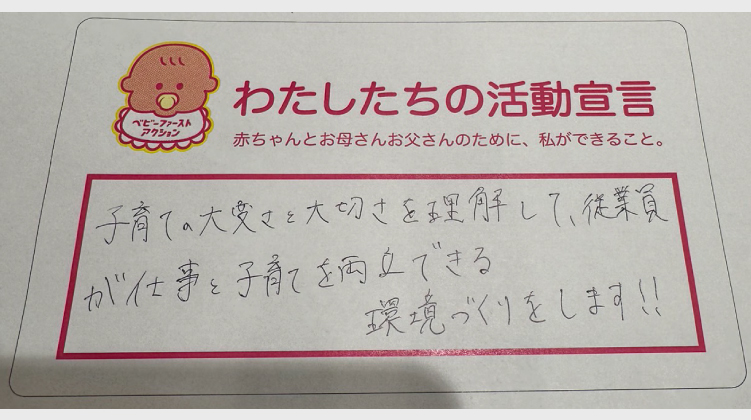 ベビーファースト
アクション
わたしたちの活動宣言
赤ちゃんとお母さんお父さんのために、私ができること。
子育ての大変さと大切さを理解して、従業員
が仕事と子育てを両立できる
環境づくりをします!!